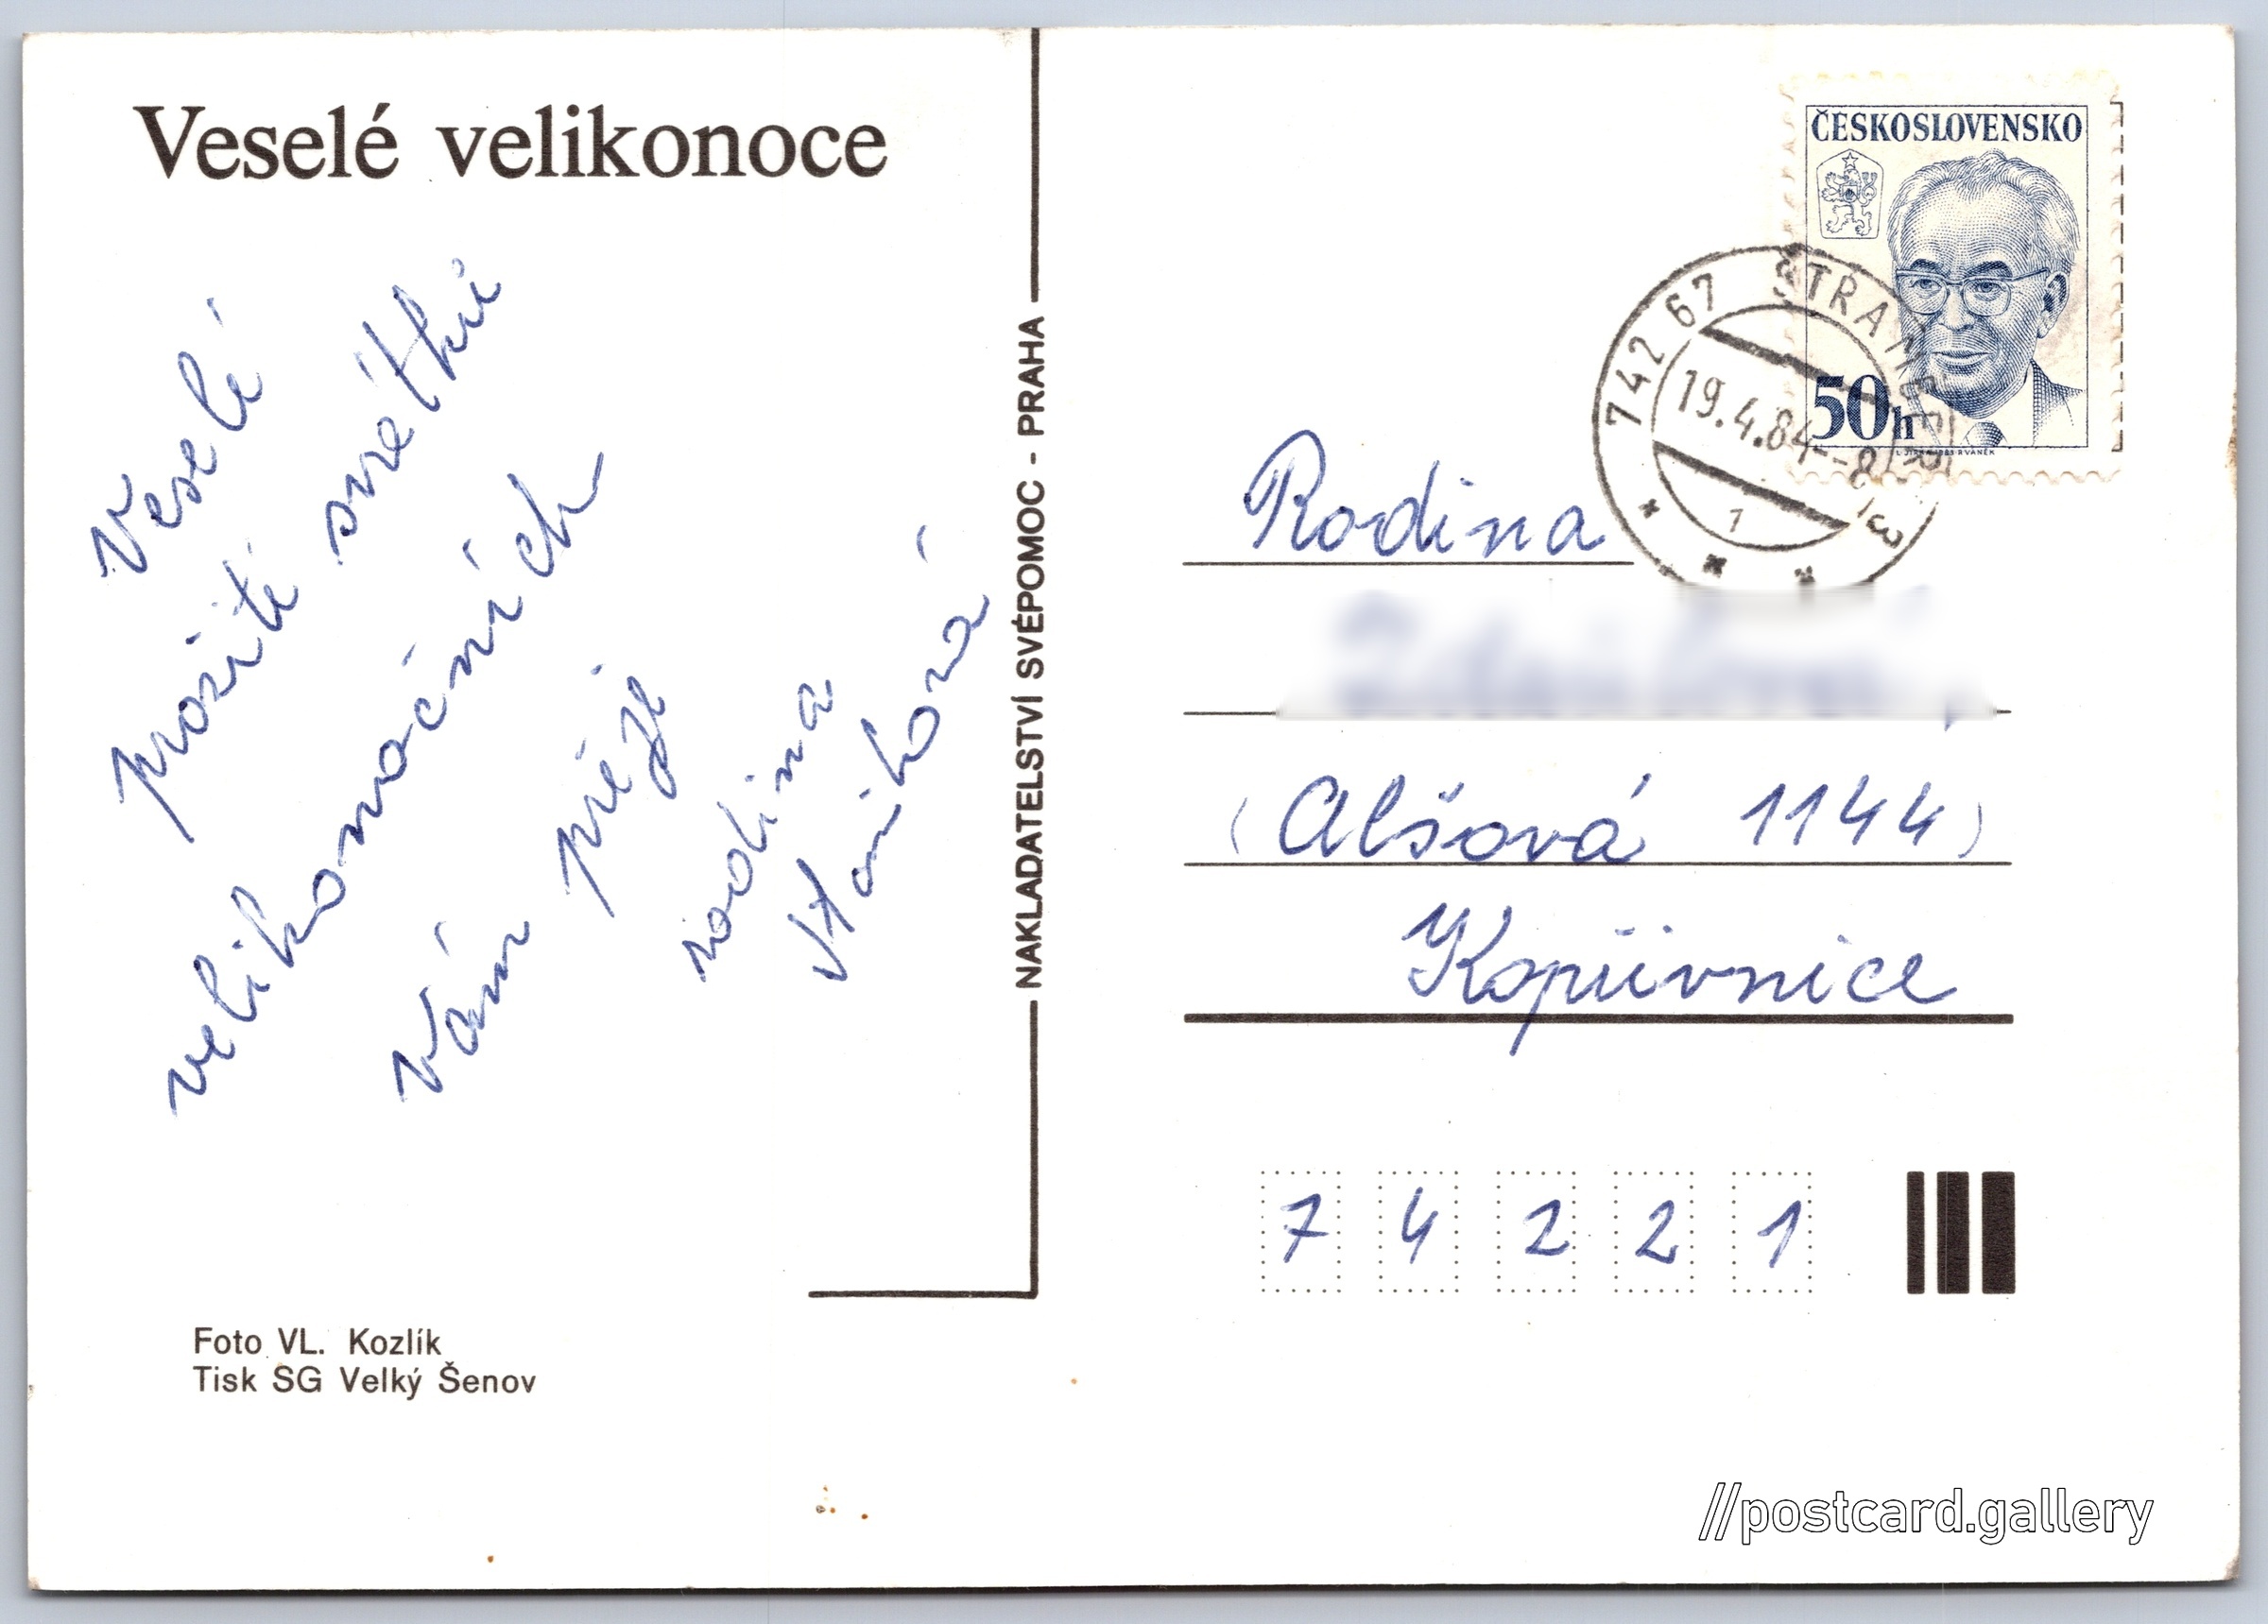 Veselé velikonoce
Veselé
prožití svátků
velikonočních
Vám přeje
rodina
NAKLADATELSTVÍ SVÉPOMOC - PRAHA
Foto VL. Kozlík
Tisk SG Velký Šenov
ČESKOSLOVENSKO
50h
742 67
19.4.84--8
1
Rodina
(Alšová 1144)
Kopřivnice
7 4 2 2 1
//postcard.gallery